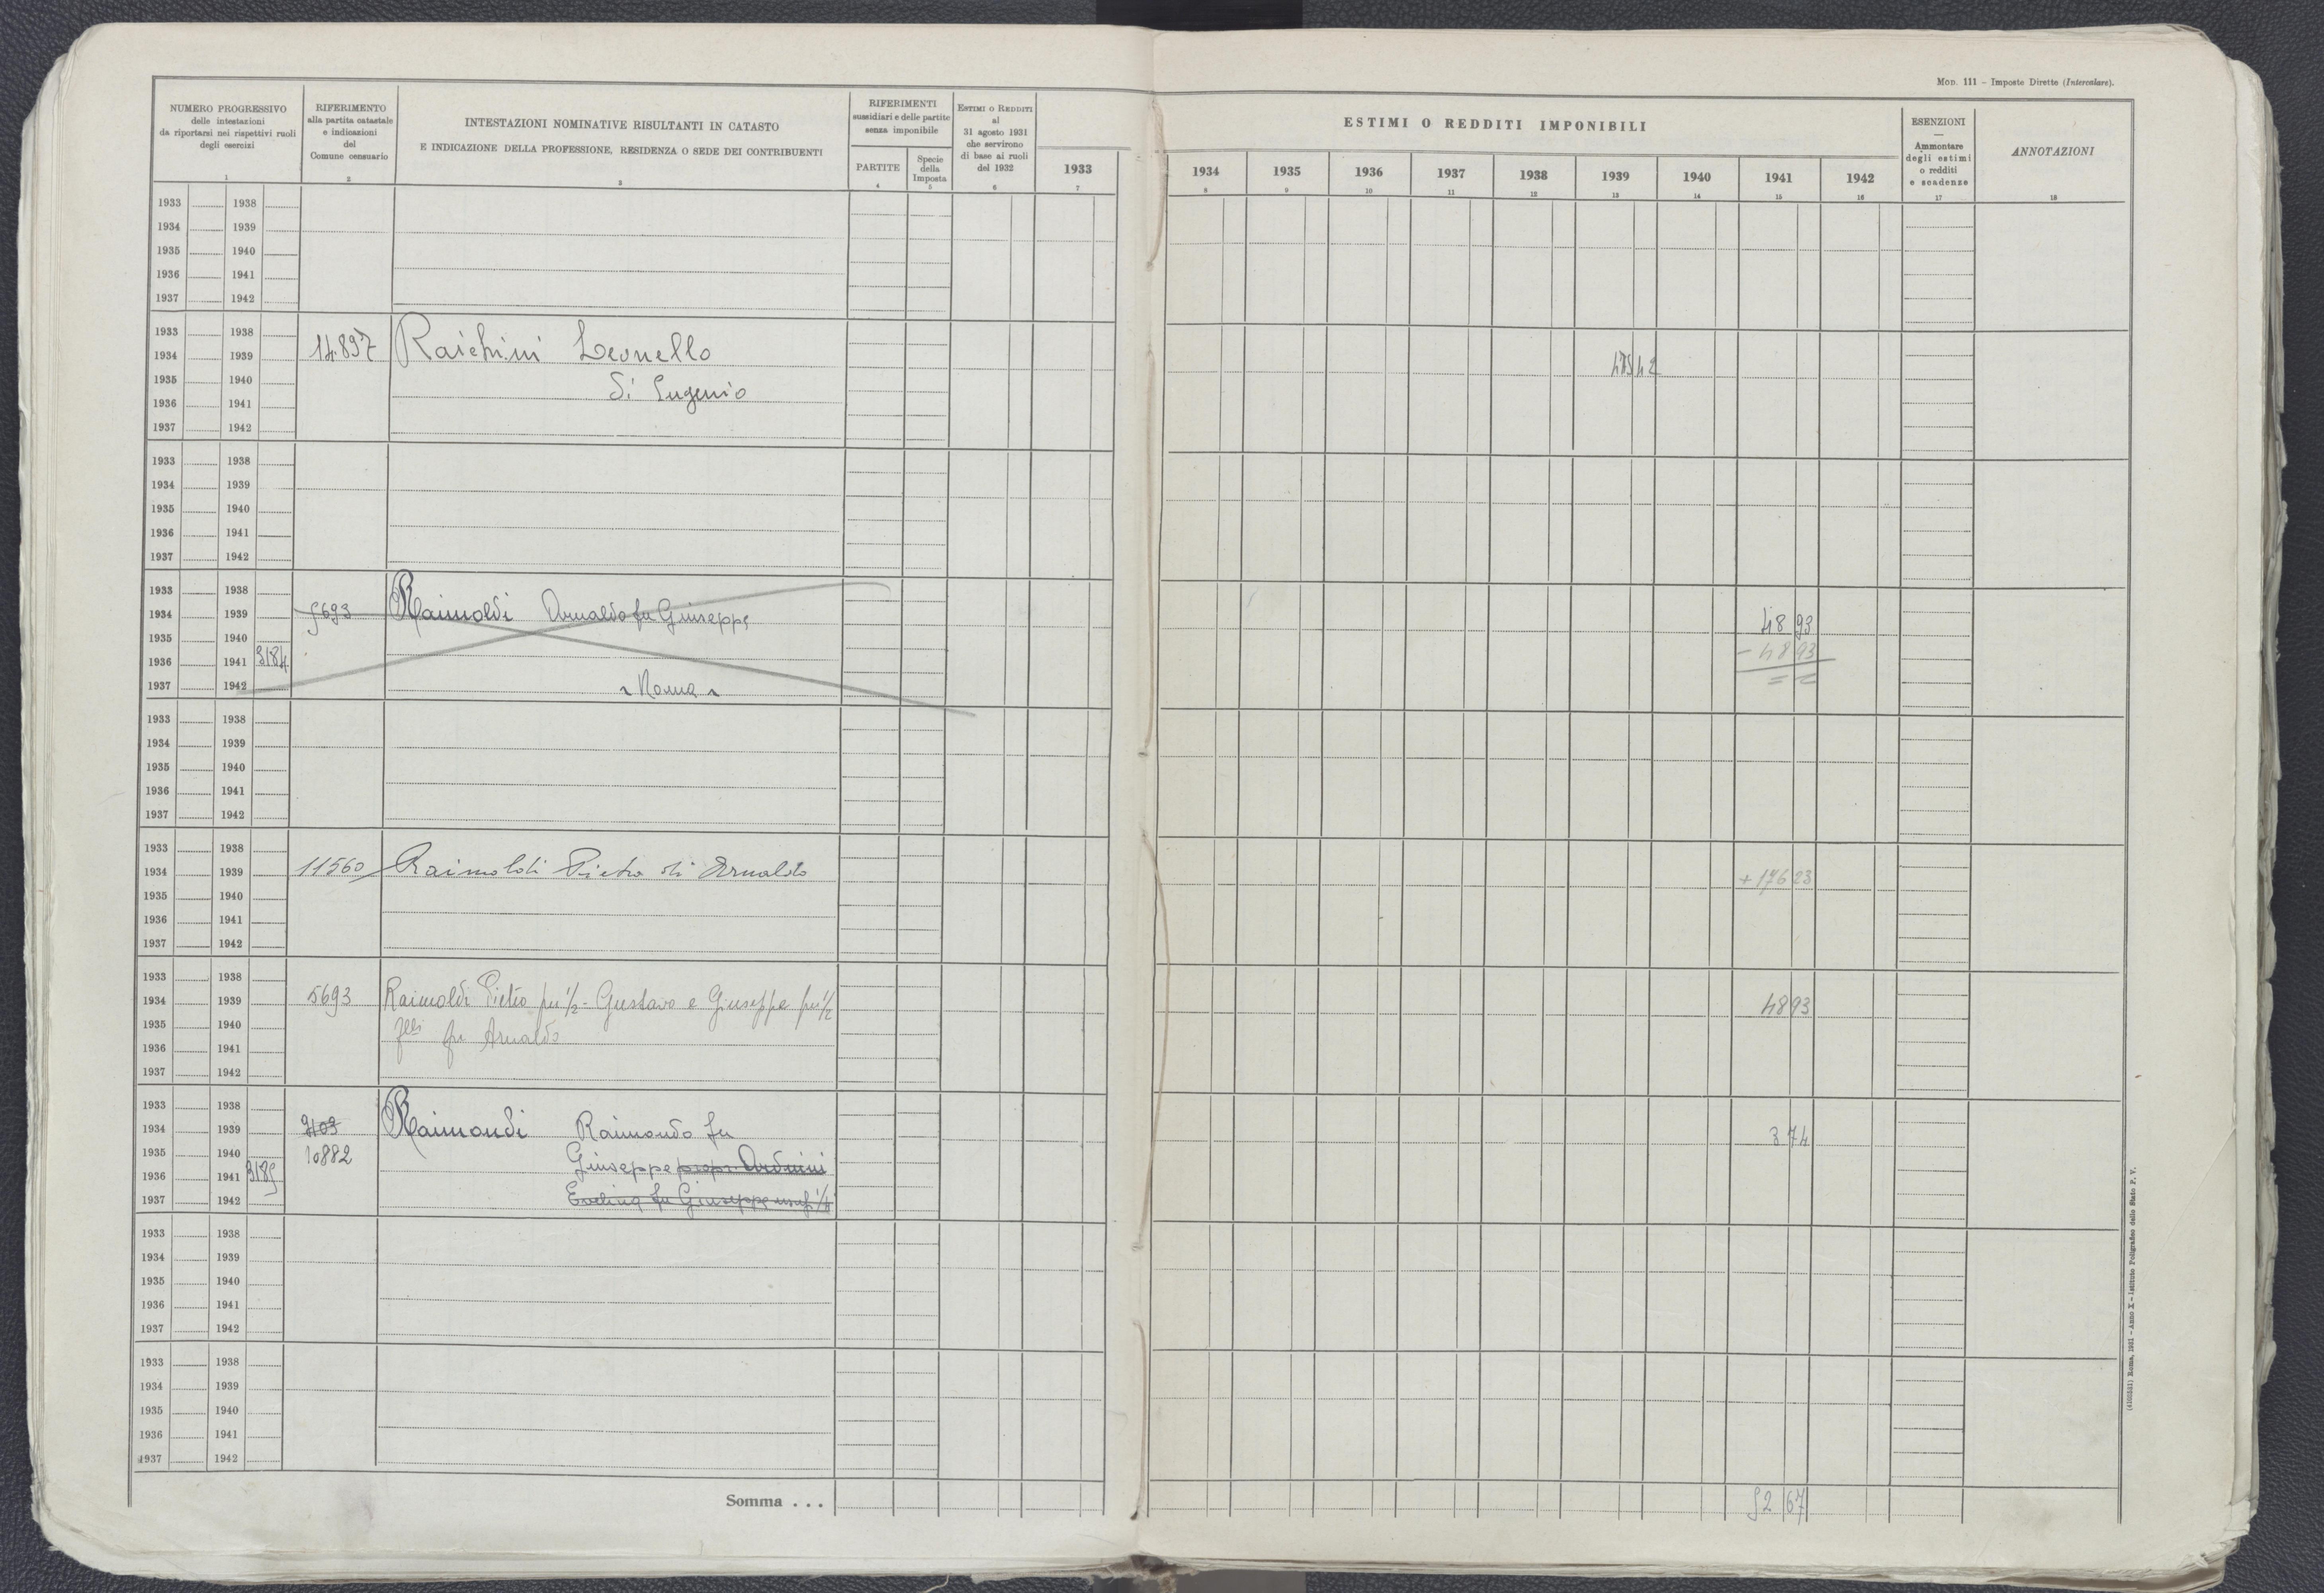 Mod. 111 – Imposte Dirette (Intercalare).
NUMERO PROGRESSIVO
delle intestazioni
da riportarsi nei rispettivi ruoli
degli esercizi
1
RIFERIMENTO
alla partita catastale
e indicazioni
del
Comune censuario
2
INTESTAZIONI NOMINATIVE RISULTANTI IN CATASTO
E INDICAZIONE DELLA PROFESSIONE, RESIDENZA O SEDE DEI CONTRIBUENTI
3
RIFERIMENTI
sussidiari e delle partite
senza imponibile
PARTITE
4
Specie
della
Imposta
5
Estimi o Redditi
al
31 agosto 1931
che servirono
di base ai ruoli
del 1932
6
1933
7
ESTIMI O REDDITI IMPONIBILI
1934 1935 1936 1937 1938 1939 1940 1941 1942
8 9 10 11 12 13 14 15 16
ESENZIONI
—
Ammontare
degli estimi
o redditi
e scadenze
17
ANNOTAZIONI
18
1933 1938
1934 1939
1935 1940
1936 1941
1937 1942
1933 1938
1934 1939 14.897 Raichini Leonello
1935 1940 di Eugenio
1936 1941
1937 1942
1933 1938
1934 1939
1935 1940
1936 1941
1937 1942
1933 1938
1934 1939 5693 Raimoldi Arnaldo fu Giuseppe 48 93
1935 1940 - 48 93
1936 1941 3184
1937 1942 Roma
1933 1938
1934 1939
1935 1940
1936 1941
1937 1942
1933 1938
1934 1939 11560 Raimoldi Pietro di Arnaldo + 176 23
1935 1940
1936 1941
1937 1942
1933 1938
1934 1939 5693 Raimoldi Pietro per 1/2 - Gustavo e Giuseppe per 1/2 48 93
1935 1940 flli fu Arnaldo
1936 1941
1937 1942
1933 1938
1934 1939 9103 Raimondi Raimondo fu 3 74
1935 1940 10882
1936 1941 3185 Giuseppe propr. Arduini
1937 1942 Evelina fu Giuseppe usuf.
1933 1938
1934 1939
1935 1940
1936 1941
1937 1942
1933 1938
1934 1939
1935 1940
1936 1941
1937 1942
Somma . . . 52 67
(4102551) Roma, 1931 – Anno X – Istituto Poligrafico dello Stato P. V.